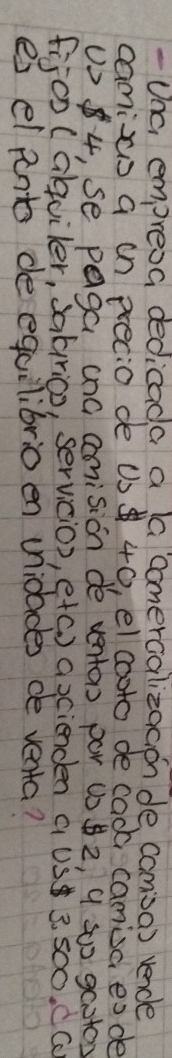 - Una empresa dedicada a la comercialización de camisas vende
camisas a un precio de US$ 40, el costo de cada camisa es de
US $4, se paga una comisión de ventas por US $2, y sus gastos
fijos (alquiler, salarios, servicios, etc.) ascienden a US$ 3.500. ¿Cu
es el punto de equilibrio en unidades de venta?